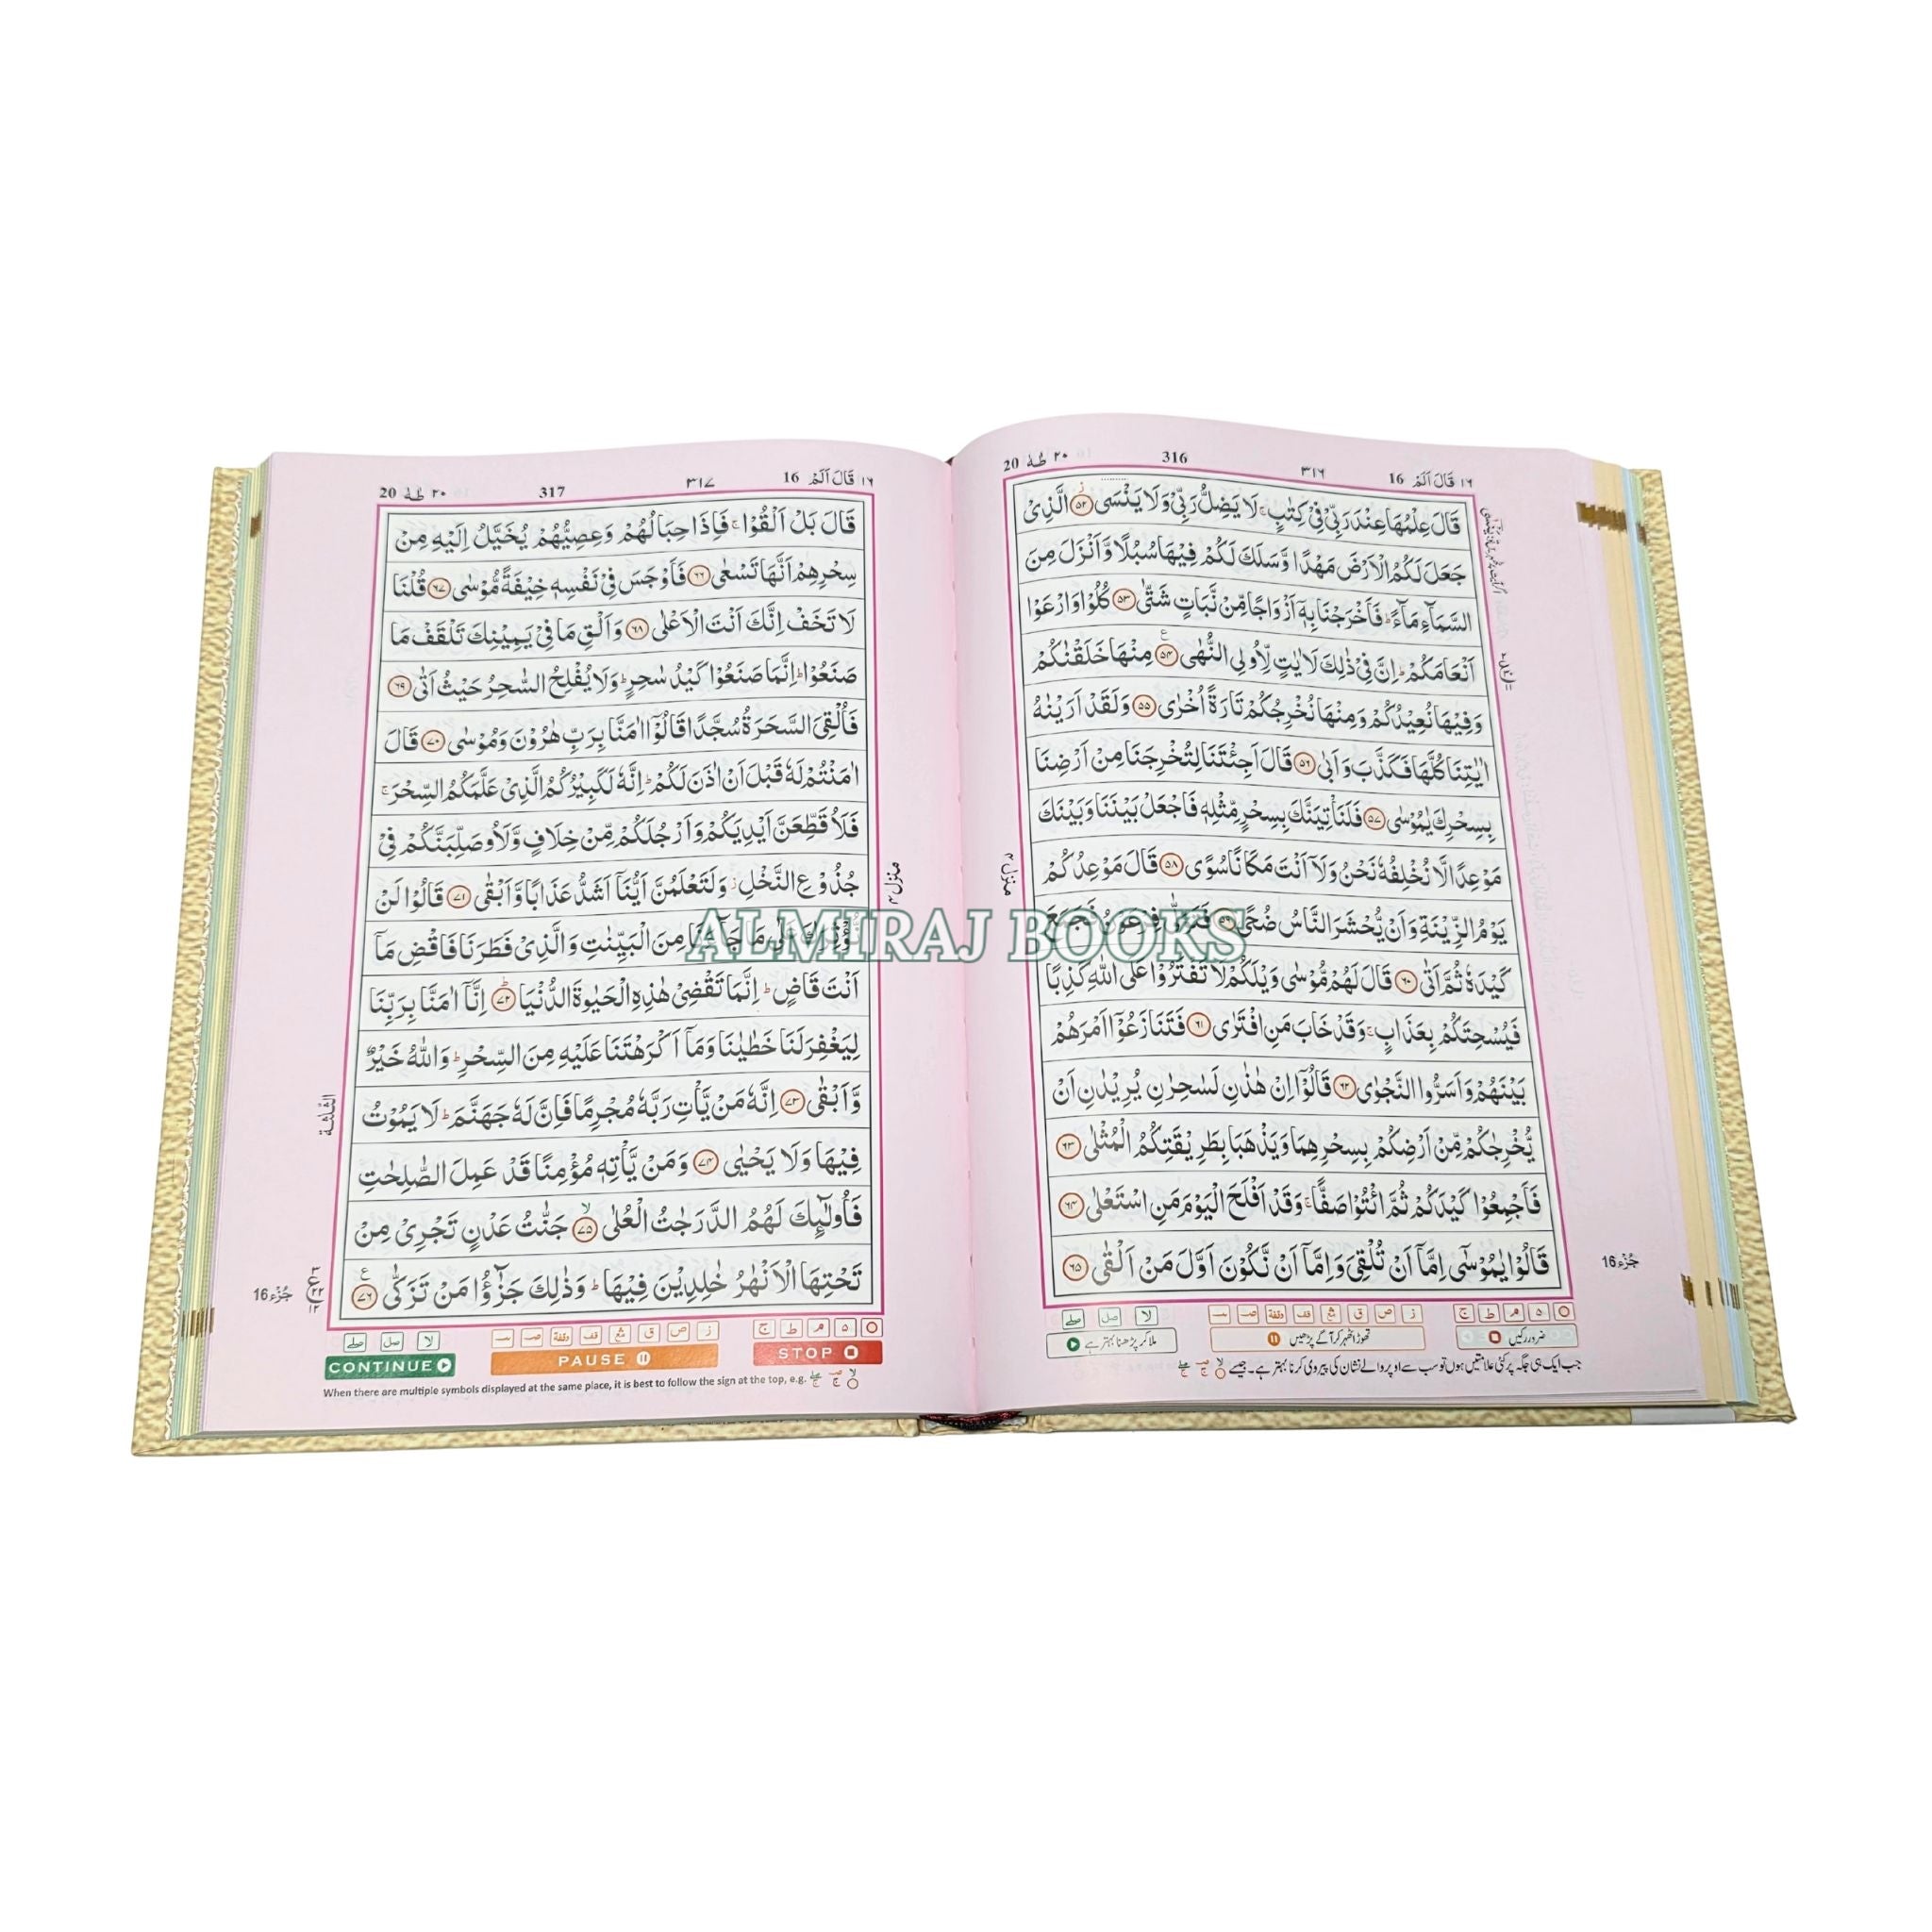 ١٦ قَالَ اَلَمْ 16
٣١٦
316
٢٠ طٰهٰ 20
قَالَ عِلْمُهَا عِنْدَ رَبِّیْ فِیْ كِتٰبٍ ۚ لَا یَضِلُّ رَبِّیْ وَلَا یَنْسَی ۝٥٢ الَّذِیْ
جَعَلَ لَكُمُ الْاَرْضَ مَهْدًا وَّسَلَكَ لَكُمْ فِیْهَا سُبُلًا وَّاَنْزَلَ مِنَ
السَّمَآءِ مَآءً ؕ فَاَخْرَجْنَا بِهٖۤ اَزْوَاجًا مِّنْ نَّبَاتٍ شَتّٰی ۝٥٣ كُلُوْا وَارْعَوْا
اَنْعَامَكُمْ ؕ اِنَّ فِیْ ذٰلِكَ لَاٰیٰتٍ لِّاُولِی النُّهٰی ۝٥٤ مِنْهَا خَلَقْنٰكُمْ
وَفِیْهَا نُعِیْدُكُمْ وَمِنْهَا نُخْرِجُكُمْ تَارَةً اُخْرٰی ۝٥٥ وَلَقَدْ اَرَیْنٰهُ
اٰیٰتِنَا كُلَّهَا فَكَذَّبَ وَاَبٰی ۝٥٦ قَالَ اَجِئْتَنَا لِتُخْرِجَنَا مِنْ اَرْضِنَا
بِسِحْرِكَ یٰمُوْسٰی ۝٥٧ فَلَنَاْتِیَنَّكَ بِسِحْرٍ مِّثْلِهٖ فَاجْعَلْ بَیْنَنَا وَبَیْنَكَ
مَوْعِدًا لَّا نُخْلِفُهٗ نَحْنُ وَلَاۤ اَنْتَ مَكَانًا سُوًی ۝٥٨ قَالَ مَوْعِدُكُمْ
یَوْمُ الزِّیْنَةِ وَاَنْ یُّحْشَرَ النَّاسُ ضُحًی ۝٥٩ فَتَوَلّٰی فِرْعَوْنُ فَجَمَعَ
كَیْدَهٗ ثُمَّ اَتٰی ۝٦٠ قَالَ لَهُمْ مُّوْسٰی وَیْلَكُمْ لَا تَفْتَرُوْا عَلَی اللّٰهِ كَذِبًا
فَیُسْحِتَكُمْ بِعَذَابٍ ۚ وَقَدْ خَابَ مَنِ افْتَرٰی ۝٦١ فَتَنَازَعُوْۤا اَمْرَهُمْ
بَیْنَهُمْ وَاَسَرُّوا النَّجْوٰی ۝٦٢ قَالُوْۤا اِنْ هٰذٰنِ لَسٰحِرٰنِ یُرِیْدٰنِ اَنْ
یُّخْرِجٰكُمْ مِّنْ اَرْضِكُمْ بِسِحْرِهِمَا وَیَذْهَبَا بِطَرِیْقَتِكُمُ الْمُثْلٰی ۝٦٣
فَاَجْمِعُوْا كَیْدَكُمْ ثُمَّ ائْتُوْا صَفًّا ۚ وَقَدْ اَفْلَحَ الْیَوْمَ مَنِ اسْتَعْلٰی ۝٦٤
قَالُوْا یٰمُوْسٰۤی اِمَّاۤ اَنْ تُلْقِیَ وَاِمَّاۤ اَنْ نَّكُوْنَ اَوَّلَ مَنْ اَلْقٰی ۝٦٥
منزل ٤
جُزْء 16
ضرور رکیں
تھوڑا ٹھہر کر آگے پڑھیں
ملا کر پڑھنا بہتر ہے
جب ایک ہی جگہ پر کئی علامتیں ہوں تو سب سے اوپر والے نشان کی پیروی کرنا بہتر ہے۔ جیسے
١٦ قَالَ اَلَمْ 16
٣١٧
317
٢٠ طٰهٰ 20
قَالَ بَلْ اَلْقُوْا ۚ فَاِذَا حِبَالُهُمْ وَعِصِیُّهُمْ یُخَیَّلُ اِلَیْهِ مِنْ
سِحْرِهِمْ اَنَّهَا تَسْعٰی ۝٦٦ فَاَوْجَسَ فِیْ نَفْسِهٖ خِیْفَةً مُّوْسٰی ۝٦٧ قُلْنَا
لَا تَخَفْ اِنَّكَ اَنْتَ الْاَعْلٰی ۝٦٨ وَاَلْقِ مَا فِیْ یَمِیْنِكَ تَلْقَفْ مَا
صَنَعُوْا ؕ اِنَّمَا صَنَعُوْا كَیْدُ سٰحِرٍ ؕ وَلَا یُفْلِحُ السّٰحِرُ حَیْثُ اَتٰی ۝٦٩
فَاُلْقِیَ السَّحَرَةُ سُجَّدًا قَالُوْۤا اٰمَنَّا بِرَبِّ هٰرُوْنَ وَمُوْسٰی ۝٧٠ قَالَ
اٰمَنْتُمْ لَهٗ قَبْلَ اَنْ اٰذَنَ لَكُمْ ؕ اِنَّهٗ لَكَبِیْرُكُمُ الَّذِیْ عَلَّمَكُمُ السِّحْرَ ۚ
فَلَاُقَطِّعَنَّ اَیْدِیَكُمْ وَاَرْجُلَكُمْ مِّنْ خِلَافٍ وَّلَاُوصَلِّبَنَّكُمْ فِیْ
جُذُوْعِ النَّخْلِ ؗ وَلَتَعْلَمُنَّ اَیُّنَاۤ اَشَدُّ عَذَابًا وَّاَبْقٰی ۝٧١ قَالُوْا لَنْ
نُّؤْثِرَكَ عَلٰی مَا جَآءَنَا مِنَ الْبَیِّنٰتِ وَالَّذِیْ فَطَرَنَا فَاقْضِ مَاۤ
اَنْتَ قَاضٍ ؕ اِنَّمَا تَقْضِیْ هٰذِهِ الْحَیٰوةَ الدُّنْیَا ۝٧٢ اِنَّاۤ اٰمَنَّا بِرَبِّنَا
لِیَغْفِرَ لَنَا خَطٰیٰنَا وَمَاۤ اَكْرَهْتَنَا عَلَیْهِ مِنَ السِّحْرِ ؕ وَاللّٰهُ خَیْرٌ
وَّاَبْقٰی ۝٧٣ اِنَّهٗ مَنْ یَّاْتِ رَبَّهٗ مُجْرِمًا فَاِنَّ لَهٗ جَهَنَّمَ ؕ لَا یَمُوْتُ
فِیْهَا وَلَا یَحْیٰی ۝٧٤ وَمَنْ یَّاْتِهٖ مُؤْمِنًا قَدْ عَمِلَ الصّٰلِحٰتِ
فَاُولٰٓىِٕكَ لَهُمُ الدَّرَجٰتُ الْعُلٰی ۝٧٥ جَنّٰتُ عَدْنٍ تَجْرِیْ مِنْ
تَحْتِهَا الْاَنْهٰرُ خٰلِدِیْنَ فِیْهَا ؕ وَذٰلِكَ جَزٰٓؤُا مَنْ تَزَكّٰی ۝٧٦
منزل ٤
الثلثة
جُزْء 16
STOP
PAUSE
CONTINUE
When there are multiple symbols displayed at the same place, it is best to follow the sign at the top, e.g.
ALMIRAJ BOOKS